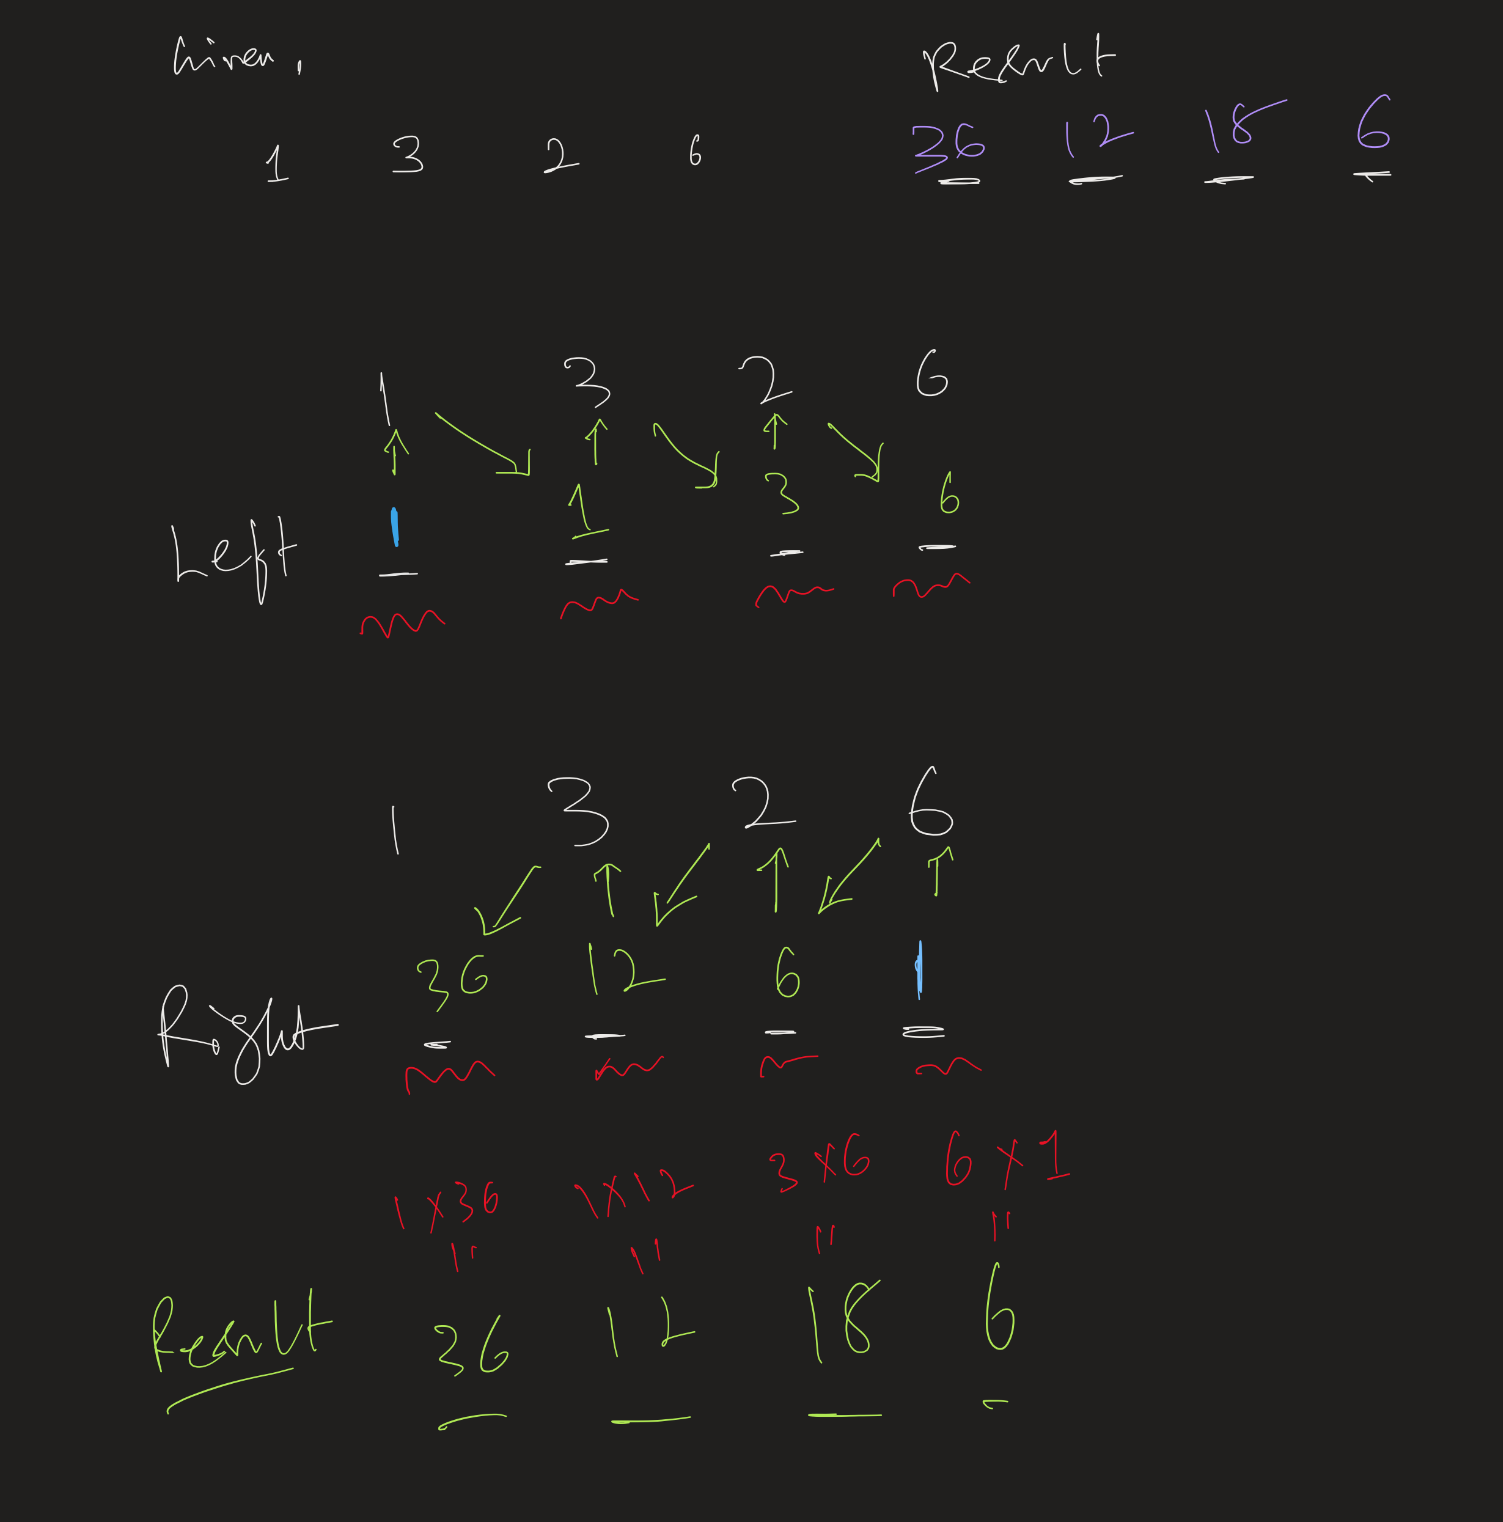 Given,
Result
1 3 2 6
36 12 18 6
1 3 2 6
Left 1 1 3 6
1 3 2 6
Right 36 12 6 1
1x36 1x12 3x6 6x1
= = = =
Result 36 12 18 6